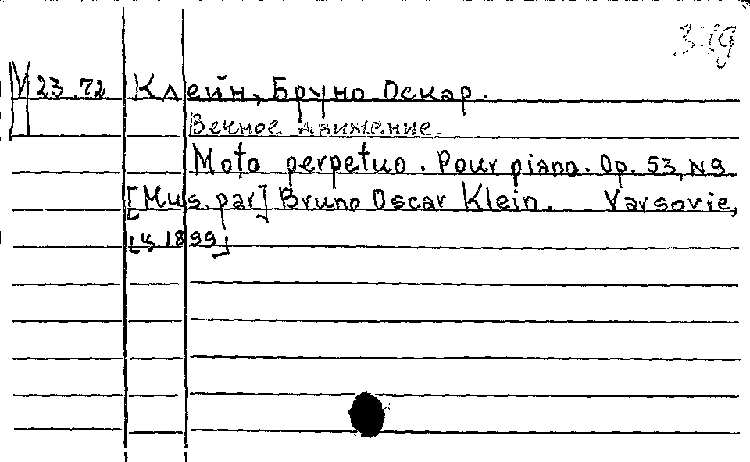 3-19
М 23.72 Клейн, Бруно Оскар.
Вечное движение.
Moto perpetuo. Pour piano. Op. 53, N9
[Mus. par] Bruno Oscar Klein. Varsovie,
1899]